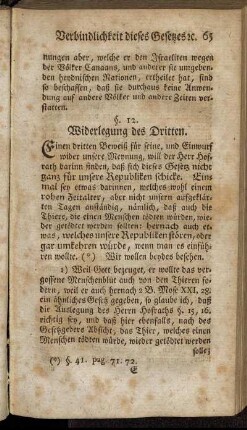 Verbindlichkeit dieses Gesetzes ꝛc. 65
nungen aber, welche er den Israeliten wegen
der Völker Canaans, und anderer sie umgeben-
den heydnischen Nationen, ertheilet hat, sind
so beschaffen, daß sie durchaus keine Anwen-
dung auf andere Völker und andere Zeiten ver-
statten.
§. 12.
Widerlegung des Dritten.
Einen dritten Beweiß für seine, und Einwurf
wider unsere Meynung, will der Herr Hof-
rath darinn finden, daß sich dieses Gesetz nicht
ganz für unsere Republiken schicke. Ein-
mal sey etwas darinnen, welches wohl einem
rohen Zeitalter, aber nicht unsern aufgeklär-
ten Tagen anständig, nämlich, daß auch die
Thiere, die einen Menschen tödten würden, wie-
der getödtet werden sollten: hernach auch et-
was, welches unsere Republiken stören, oder
gar umkehren würde, wenn man es einfüh-
ren wollte. (*) Wir wollen beydes besehen.
1) Weil Gott bezeuget, er wollte das ver-
gossene Menschenblut auch von den Thieren fo-
dern, weil er auch hernach 2 B. Mose XXI, 28.
ein ähnliches Gesetz gegeben, so glaube ich, daß
die Auslegung des Herrn Hofraths §. 15, 16.
richtig sey, und daß hier ebenfalls, nach des
Gesetzgebers Absicht, das Thier, welches einen
Menschen tödten würde, wieder getödtet werden
solle;
(*) §. 41. pag. 71. 72.
E